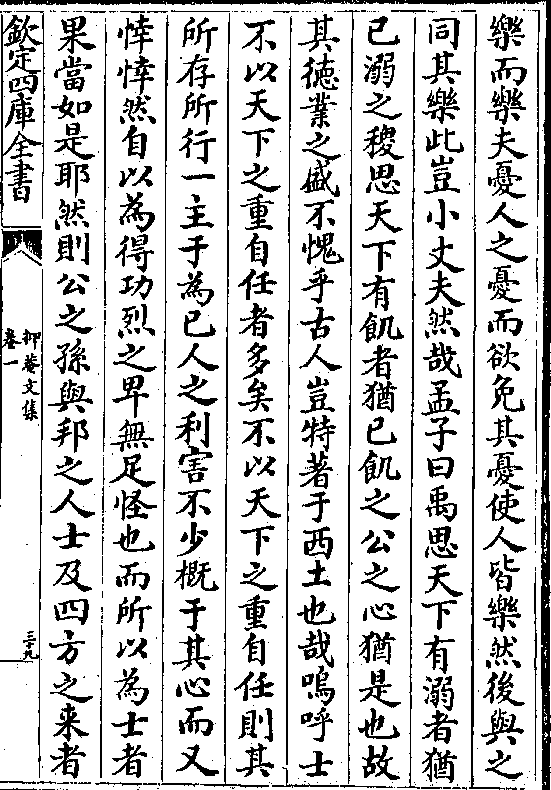 樂而樂夫憂人之憂而欲免其憂使人皆樂然後與之
同其樂此豈小丈夫然哉孟子曰禹思天下有溺者猶
己溺之稷思天下有飢者猶己飢之公之心猶是也故
其德業之盛不愧乎古人豈特著于西土也哉嗚呼士
不以天下之重自任者多矣不以天下之重自任則其
所存所行一主于為己人之利害不少概于其心而又
悻悻然自以為得功烈之卑無足怪也而所以為士者
果當如是耶然則公之孫與邦之人士及四方之来者
欽定四庫全書
抑菴文集
卷一
三九